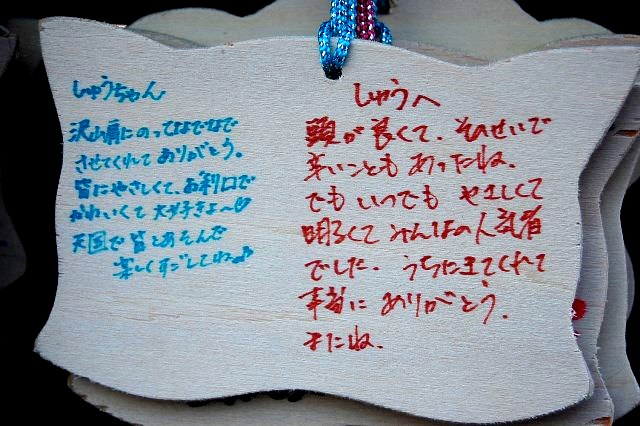 しゅうちゃん
沢山肩にのってなでなで
させてくれてありがとう。
皆にやさしくて、お利口で
かわいくて大好きよ〜♡
天国で皆とあそんで
楽しくすごしてね♪
しゅうへ
頭が良くて、そのせいで
辛いこともあったね。
でもいつでもやさしくて
明るくてみんなの人気者
でした。うちに来てくれて
本当にありがとう。
またね。